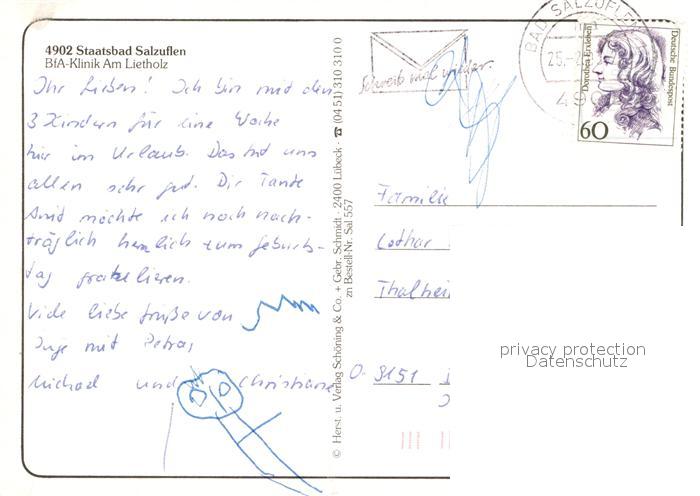 4902 Staatsbad Salzuflen
BfA-Klinik Am Lietholz
Ihr Lieben! Ich bin mit den
3 Kindern für eine Woche
hier im Urlaub. Das tut uns
allen sehr gut. Dir Tante
möchte ich noch nach-
träglich herzlich zum Geburts-
tag gratulieren.
Viele liebe Grüße von
Inge mit Petra,
Michael und Christiane
© Herst. u. Verlag Schöning & Co. + Gebr. Schmidt · 2400 Lübeck · ☎ (04 51) 310 310 0
zn Bestell-Nr. Sal 557
Schreib mal wieder
BAD SALZUFLEN
25.-
49
Dorothea Erxleben
Deutsche Bundespost
60
Familie
Lothar
Thalhei
O-9151
privacy protection
Datenschutz